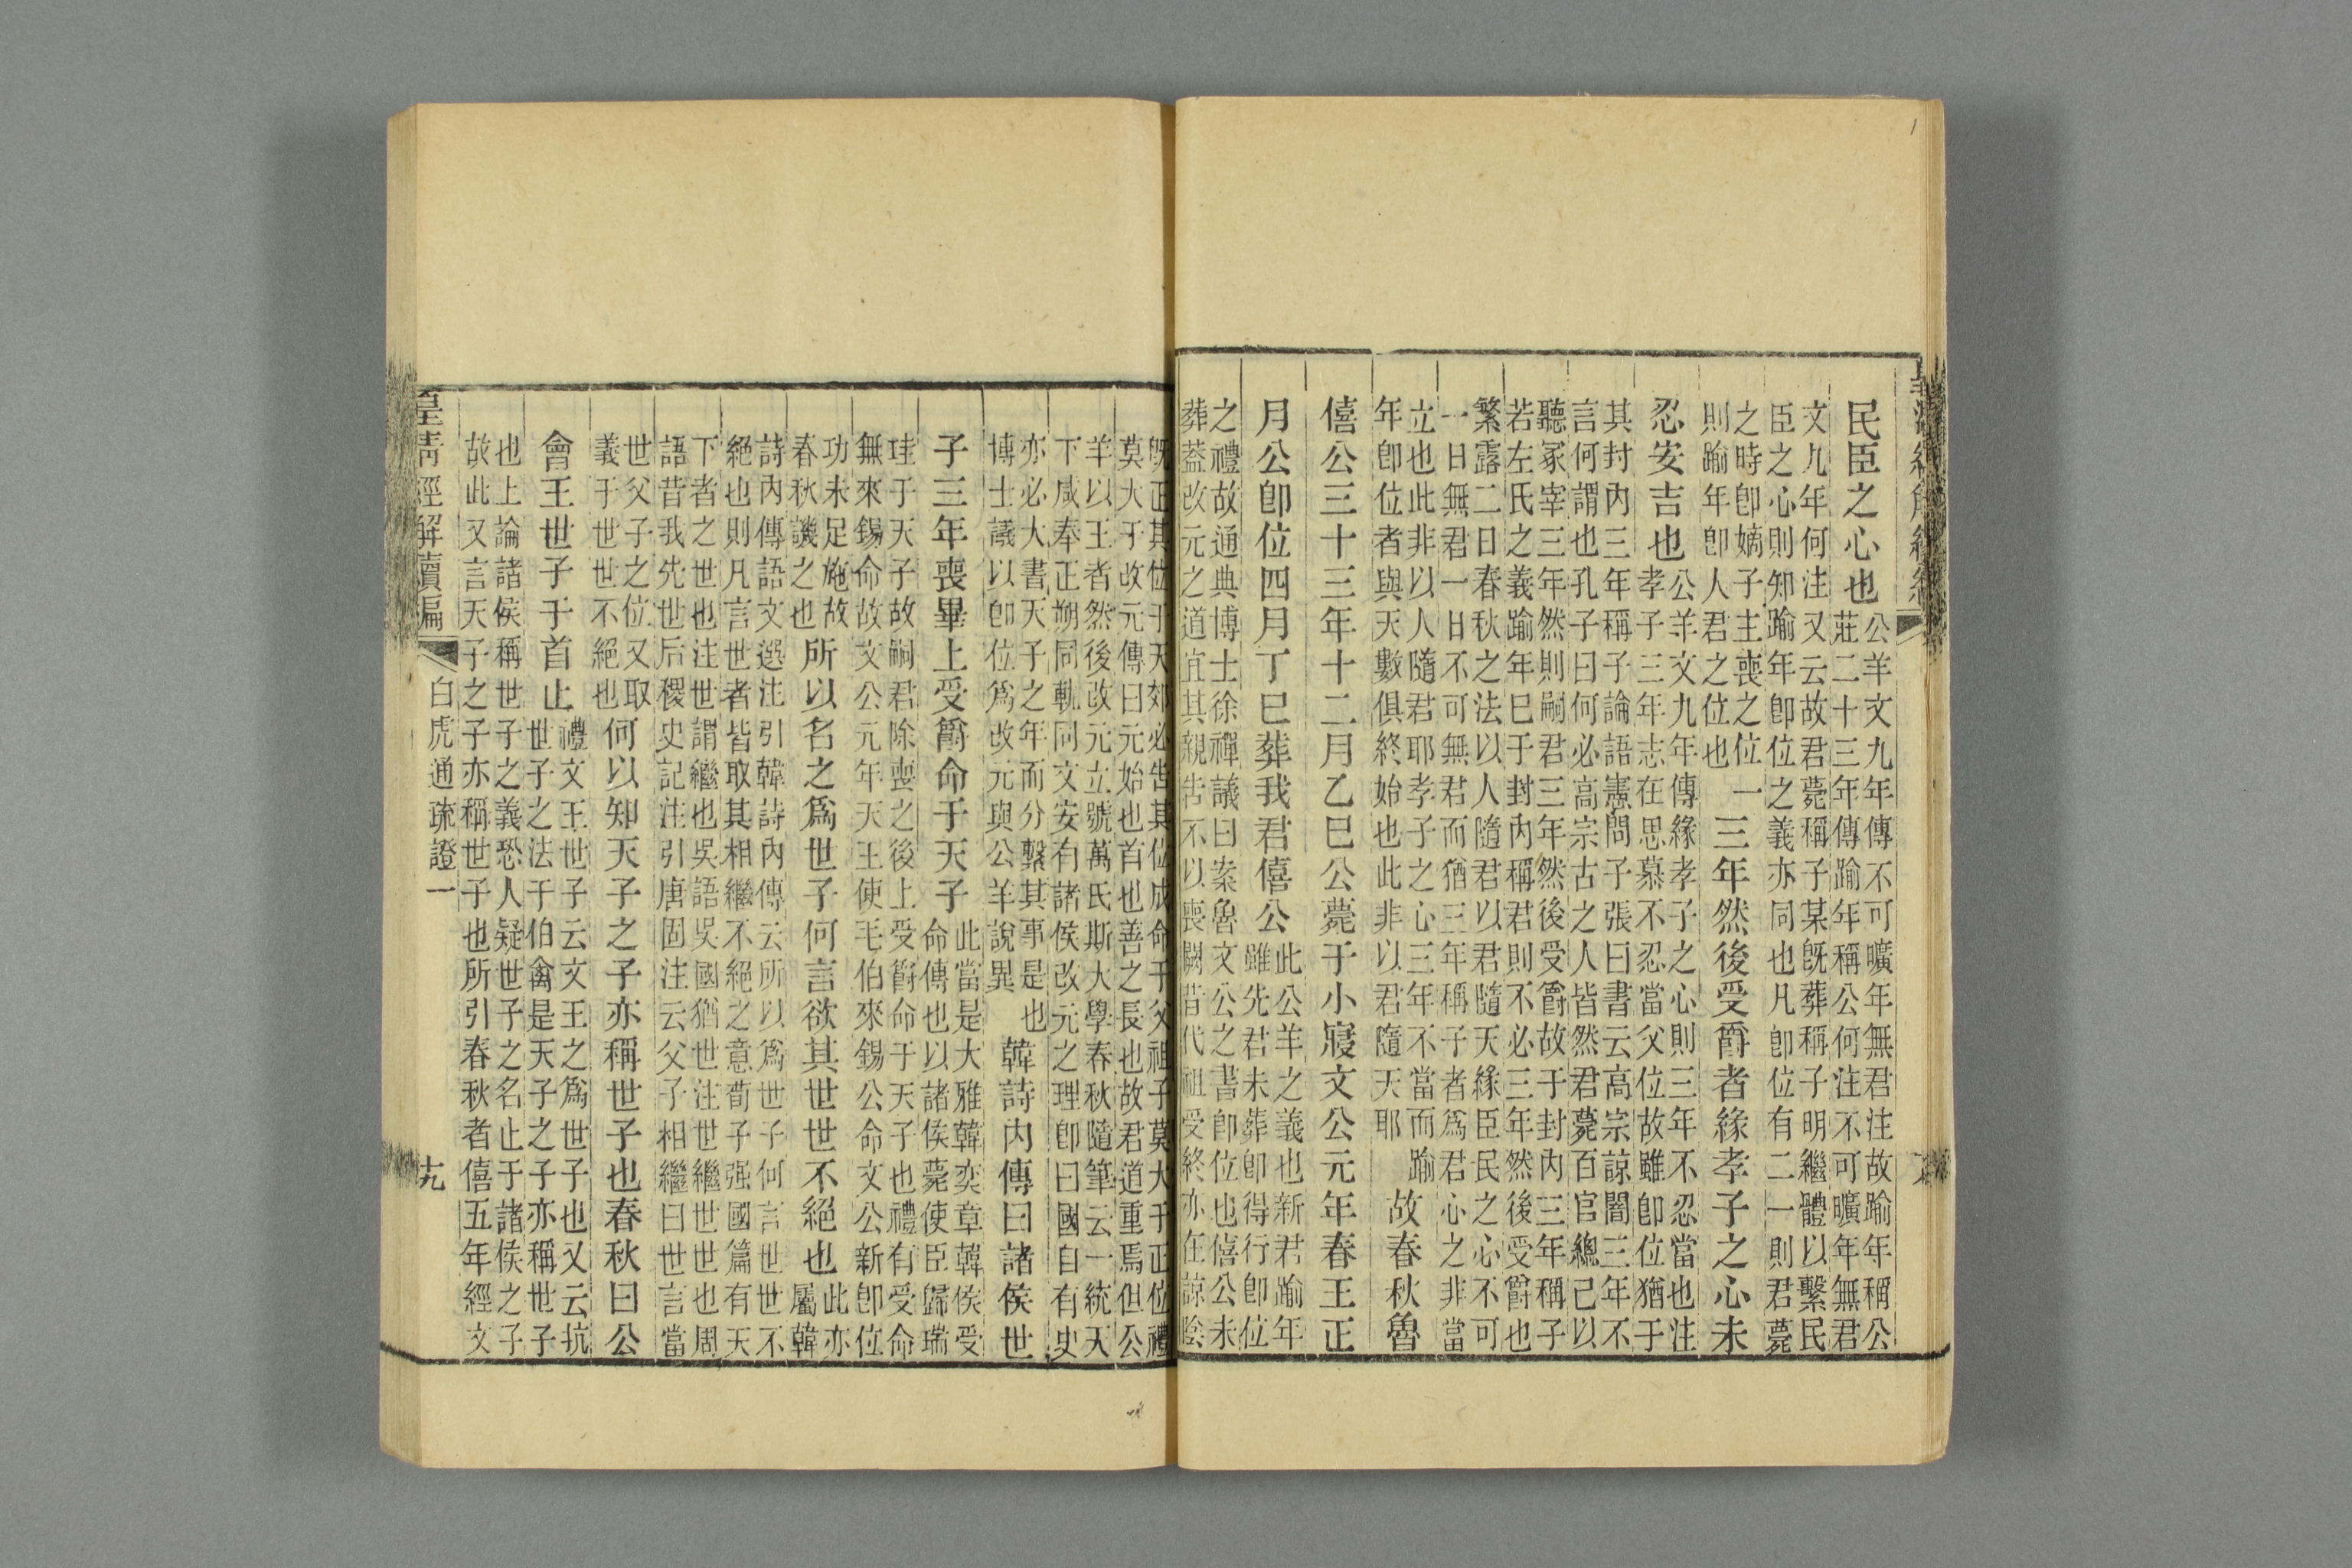 民臣之心也
公羊文九年傳不可曠年無君注故踰年稱公
莊二十三年傳踰年稱公何注不可曠年無君
文九年何注又云故君薨稱子某旣葬稱子明繼體以繫民
臣之心則知踰年卽位之義亦同也凡卽位有二一則君薨
之時卽嫡子主喪之位一
則踰年卽人君之位也
三年然後受爵者緣孝子之心未
忍安吉也
公羊文九年傳緣孝子之心則三年不忍當也注
孝子三年志在思慕不忍當父位故雖卽位猶于
其封內三年稱子論語憲問子張曰書云高宗諒闇三年不
言何謂也孔子曰何必高宗古之人皆然君薨百官總己以
聽冢宰三年然則嗣君三年然後受爵故于封內三年稱子
若左氏之義踰年巳于封內稱君則不必三年然後受爵也
繁露二日春秋之法以人隨君以君隨天緣臣民之心不可
一日無君一日不可無君而猶三年稱子者爲君心之非當
立也此非以人隨君耶孝子之心三年不當而踰
年卽位者與天數俱終始也此非以君隨天耶
故春秋魯
僖公三十三年十二月乙巳公薨于小寢文公元年春王正
月公卽位四月丁巳葬我君僖公
此公羊之義也新君踰年
雖先君未葬卽得行卽位
之禮故通典博士徐禪議曰案魯文公之書卽位也僖公未
葬蓋改元之道宜其親告不以喪闋昔代祖受終亦在諒陰
旣正其位于天郊必告其位成命于父祖子莫大于正位禮
莫大于改元傳曰元始也首也善之長也故君道重焉但公
羊以王者然後改元立號萬氏斯大學春秋隨筆云一統天
下咸奉正朔同軌同文安有諸侯改元之理卽曰國自有史
亦必大書天子之年而分繫其事是也
博士議以卽位爲改元與公羊說異
韓詩内傳曰諸侯世
子三年喪畢上受爵命于天子
此當是大雅韓奕章韓侯受
命傳也以諸侯薨使臣歸瑞
珪于天子故嗣君除喪之後上受爵命于天子也禮有受命
無來錫命故文公元年天王使毛伯來錫公命文公新卽位
功未足施故
春秋譏之也
所以名之爲世子何言欲其世世不絕也
此亦
屬韓
詩内傳語文選注引韓詩内傳云所以爲世子何言世世不
絕也則凡言世者皆取其相繼不絕之意荀子强國篇有天
下者之世也注世謂繼也吳語吳國猶世注世繼世世也周
語昔我先世后稷史記注引唐固注云父子相繼曰世言當
世父子之位又取
義于世世不絕也
何以知天子之子亦稱世子也春秋曰公
會王世子于首止
禮文王世子云文王之爲世子也又云抗
世子之法于伯禽是天子之子亦稱世子
也上論諸侯稱世子之義恐人疑世子之名止于諸侯之子
故此又言天子之子亦稱世子也所引春秋者僖五年經文
皇清經解續編
白虎通疏證一
十九